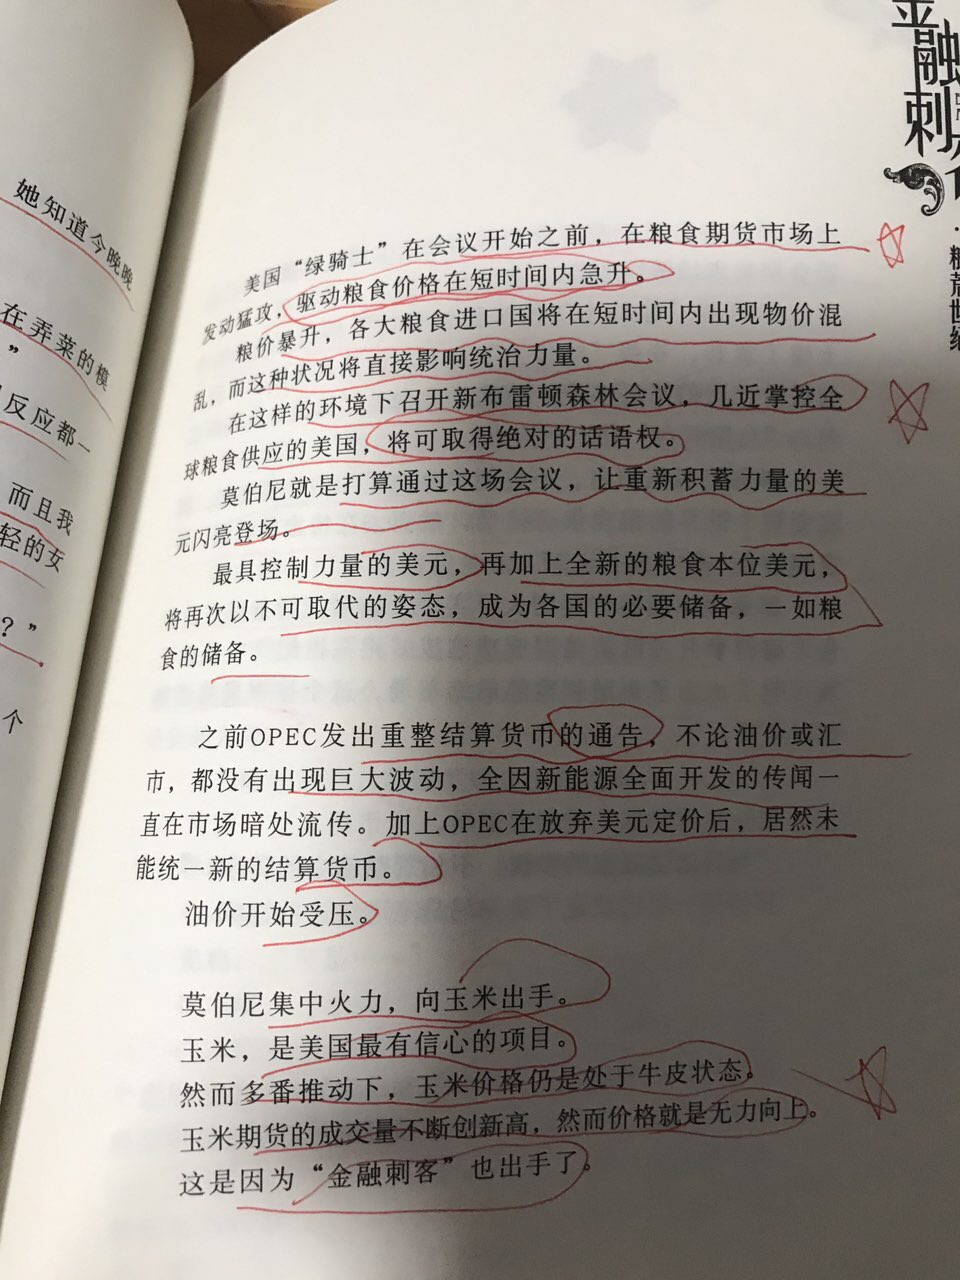 她知道今晚晚
在弄菜的模
”
反应都一
而且我
轻的女
？”
个
金融刺
·粮荒世纪
美国“绿骑士”在会议开始之前，在粮食期货市场上
发动猛攻，驱动粮食价格在短时间内急升。
粮价暴升，各大粮食进口国将在短时间内出现物价混
乱，而这种状况将直接影响统治力量。
在这样的环境下召开新布雷顿森林会议，几近掌控全
球粮食供应的美国，将可取得绝对的话语权。
莫伯尼就是打算通过这场会议，让重新积蓄力量的美
元闪亮登场。
最具控制力量的美元，再加上全新的粮食本位美元，
将再次以不可取代的姿态，成为各国的必要储备，一如粮
食的储备。
之前OPEC发出重整结算货币的通告，不论油价或汇
市，都没有出现巨大波动，全因新能源全面开发的传闻一
直在市场暗处流传。加上OPEC在放弃美元定价后，居然未
能统一新的结算货币。
油价开始受压。
莫伯尼集中火力，向玉米出手。
玉米，是美国最有信心的项目。
然而多番推动下，玉米价格仍是处于牛皮状态。
玉米期货的成交量不断创新高，然而价格就是无力向上。
这是因为“金融刺客”也出手了。